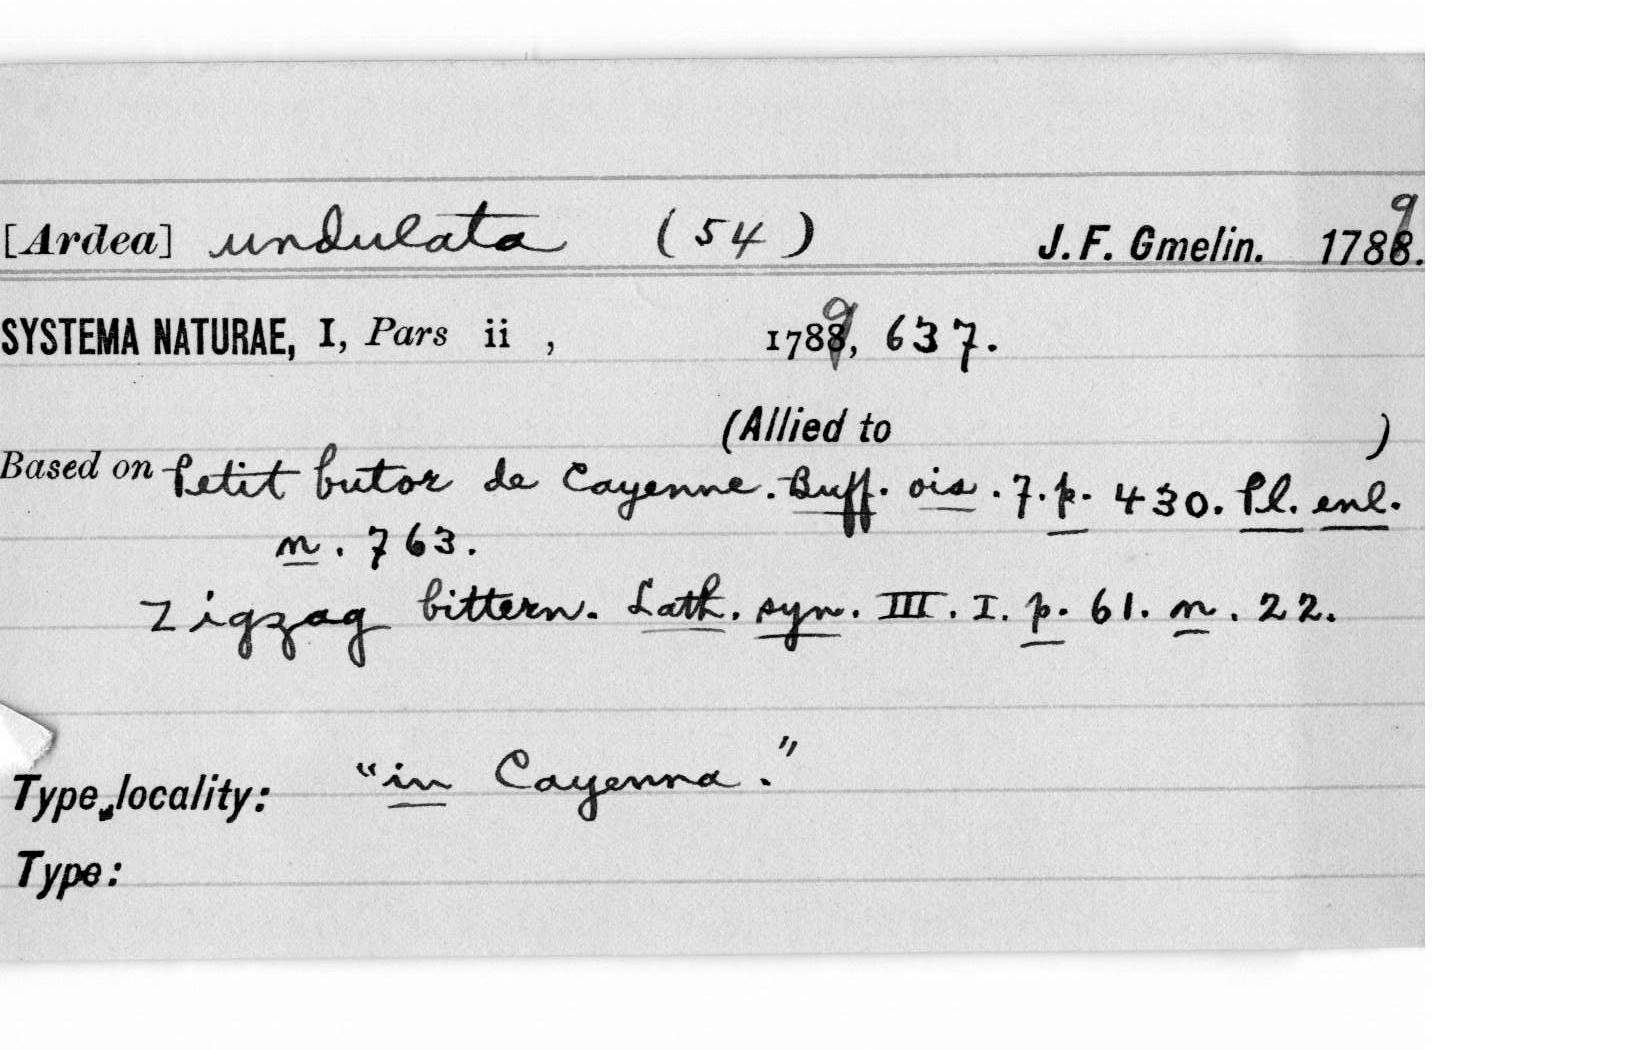 [Ardea] undulata (54) J. F. Gmelin. 1789.
SYSTEMA NATURAE, I, Pars ii , 1789, 637.
(Allied to )
Based on Petit butor de Cayenne. Buff. ois. 7. p. 430. Pl. enl.
n. 763.
Zigzag bittern. Lath. syn. III. I. p. 61. n. 22.
Type locality: "in Cayenna."
Type: